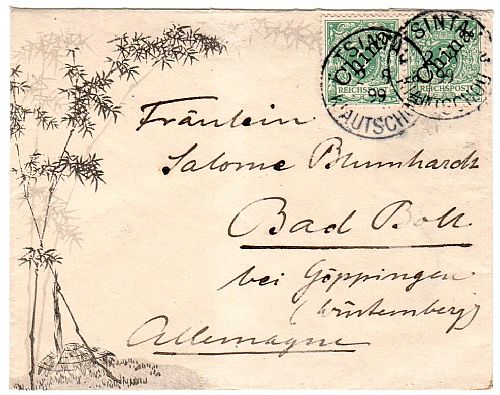 China China
REICHSPOST REICHSPOST
TSINTAU
99
KIAUTSCHOU
Fräulein
Salome Blumhardt
Bad Boll
bei Göppingen
(Württemberg)
Allemagne